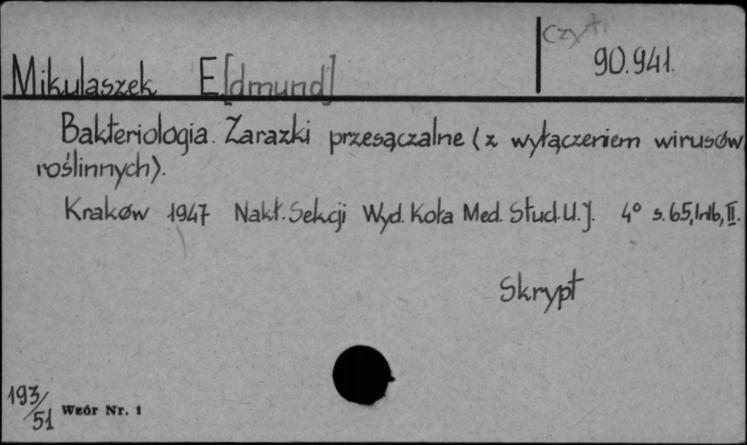 Czyt.
90.941.
Mikulaszek E[dmund]
Bakteriologia. Zarazki przesączalne (z wyłączeniem wirusów
roślinnych).
Kraków 1947 Nakł. Sekcji Wyd. Koła Med. Stud. U.J. 4° s. 65, 1nlb, II.
Skrypt
193/51
Wzór Nr. 1